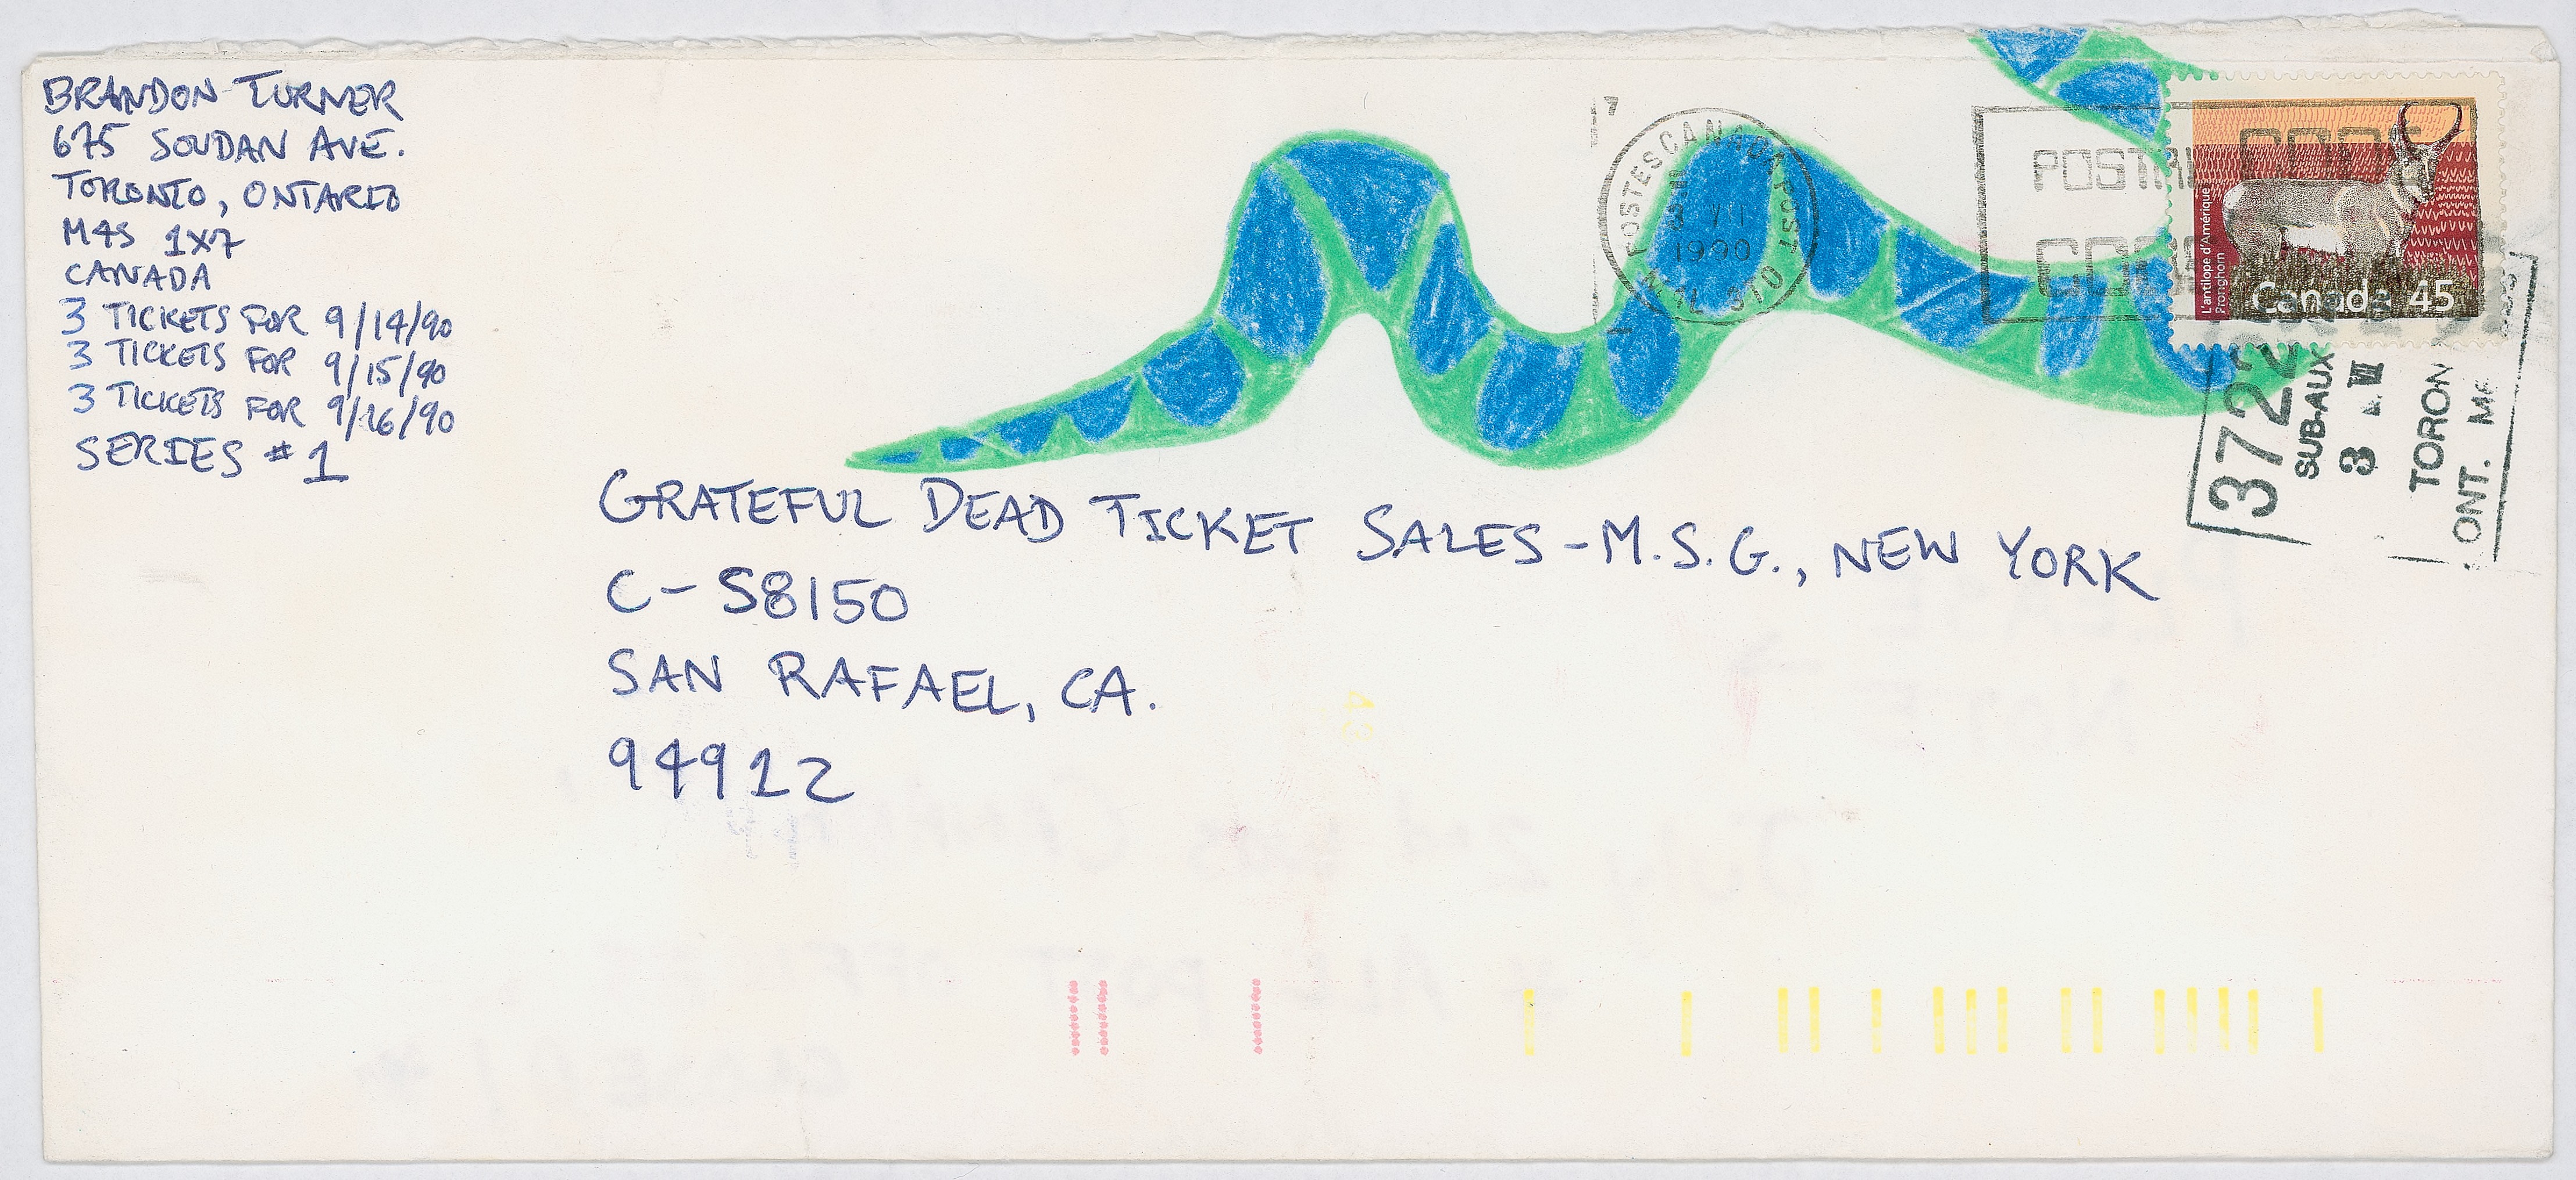 BRANDON TURNER
675 SOUDAN AVE.
TORONTO, ONTARIO
M4S 1X7
CANADA
3 TICKETS FOR 9/14/90
3 TICKETS FOR 9/15/90
3 TICKETS FOR 9/16/90
SERIES #1
GRATEFUL DEAD TICKET SALES - M.S.G., NEW YORK
C- S8150
SAN RAFAEL, CA.
94912
POSTES CANADA POST
3 VII
1990
POSTAL CODE
L'antilope d'Amérique
Pronghorn
Canada 45
3722
SUB-AUX
3 VII
TORON
ONT.